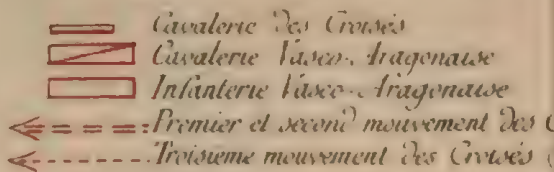 Cavalerie des Croisés
Cavalerie Vasco-Aragonaise
Infanterie Vasco-Aragonaise
Premier et second mouvement des C
Troisieme mouvement des Croisés (